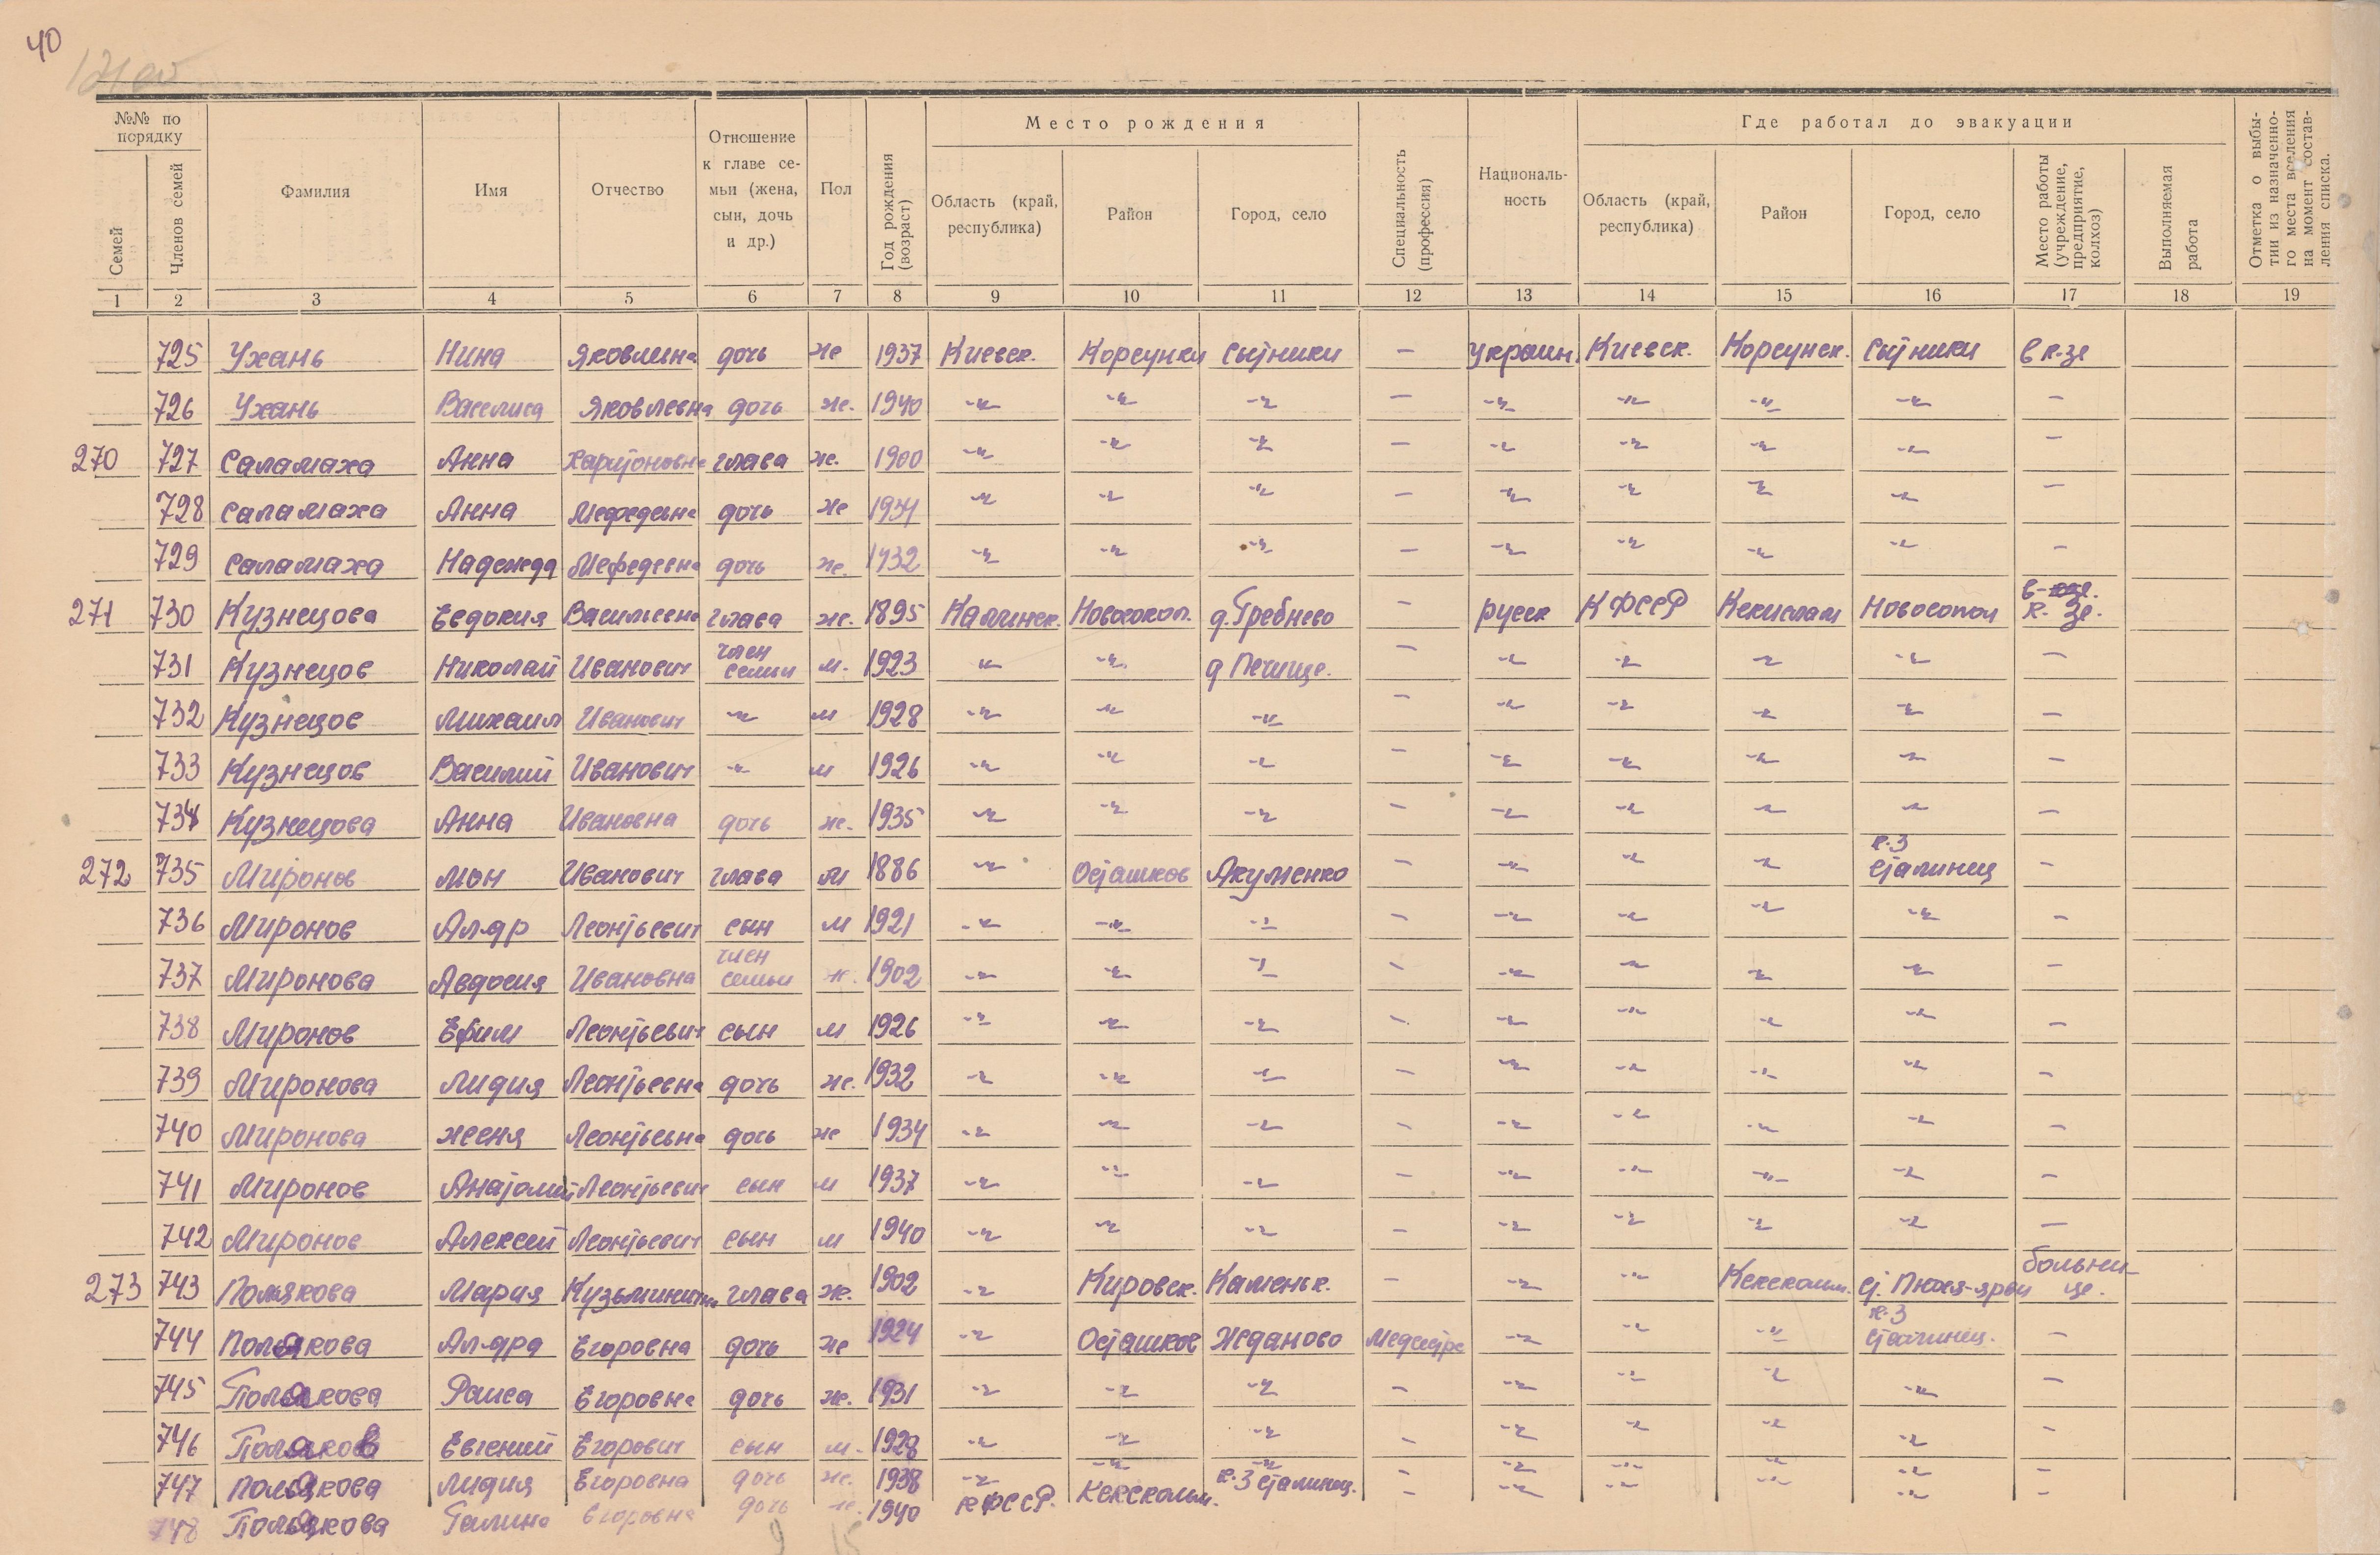 40
№№ по порядку
Место рождения
Где работал до эвакуации
Семей
Членов семей
Фамилия
Имя
Отчество
Отношение к главе семьи (жена, сын, дочь и др.)
Пол
Год рождения (возраст)
Область (край, республика)
Район
Город, село
Специальность (профессия)
Националь-ность
Область (край, республика)
Район
Город, село
Место работы (учреждение, предприятие, колхоз)
Выполняемая работа
Отметка о выбы-тии из назначенно-го места вселения на момент состав-ления списка.
1 2 3 4 5 6 7 8 9 10 11 12 13 14 15 16 17 18 19
725 Ухань Нина Яковлина дочь же 1937 Киевск. Корсунки Сытники — украин. Киевск. Корсунск. Сытники в к-зе
726 Ухань Василиса Яковлевна дочь ж. 1940 -"- -"- -"- — -"- -"- -"- -"- —
270 727 Саламаха Анна Харитоновна глава ж. 1900 -"- -"- -"- — -"- -"- -"- -"- —
728 Саламаха Анна Мефедевна дочь же 1934 -"- -"- -"- — -"- -"- -"- -"- —
729 Саламаха Надежда Мефедевна дочь ж. 1932 -"- -"- -"- — -"- -"- -"- -"- —
271 730 Кузнецова Евдокия Васильевна глава ж. 1895 Калининск. Новосокол. д. Гребнево — русск КФССР Новосокол к-зе.
731 Кузнецов Николай Иванович член семьи м. 1923 -"- -"- д Печище. — -"- -"- -"- -"- —
732 Кузнецов Михаил Иванович -"- м 1928 -"- -"- -"- — -"- -"- -"- -"- —
733 Кузнецов Василий Иванович -"- м 1926 -"- -"- -"- — -"- -"- -"- -"- —
734 Кузнецова Анна Ивановна дочь ж. 1935 -"- -"- -"- — -"- -"- -"- -"- —
272 735 Миронов Иванович глава м 1886 -"- Осташков Акуменко — -"- -"- -"- к-з Сталинец —
736 Миронов Ал-др Леонтьевич сын м 1921 -"- -"- -"- — -"- -"- -"- -"- —
737 Миронова Авдосия Ивановна член семьи ж. 1902 -"- -"- -"- — -"- -"- -"- -"- —
738 Миронов Ефим Леонтьевич сын м 1926 -"- -"- -"- — -"- -"- -"- -"- —
739 Миронова Лидия Леонтьевна дочь ж. 1932 -"- -"- -"- — -"- -"- -"- -"- —
740 Миронова Женя Леонтьевна дочь же 1934 -"- -"- -"- — -"- -"- -"- -"- —
741 Миронов Анатолий Леонтьевич сын м 1937 -"- -"- -"- — -"- -"- -"- -"- —
742 Миронов Алексей Леонтьевич сын м 1940 -"- -"- -"- — -"- -"- -"- -"- —
273 743 Полякова Мария Кузьминична глава ж. 1902 -"- Кировск. Каменьк. — -"- -"- Кексхольм. ст. Пюхя-ярви больни-це.
744 Полякова Ал-дра Егоровна дочь же 1924 -"- Осташков Жеданово Медсестра -"- -"- -"- к-з Сталинец. —
745 Полякова Раиса Егоровна дочь ж. 1931 -"- -"- -"- — -"- -"- -"- -"- —
746 Поляков Евгений Егорович сын м. 1928 -"- -"- -"- — -"- -"- -"- -"- —
747 Полякова Лидия Егоровна дочь ж. 1938 -"- -"- -"- — -"- -"- -"- -"- —
748 Полякова Галина Егоровна дочь ж. 1940 КФССР. Кексхольм. к-з Сталинец. — -"- -"- -"- -"- —